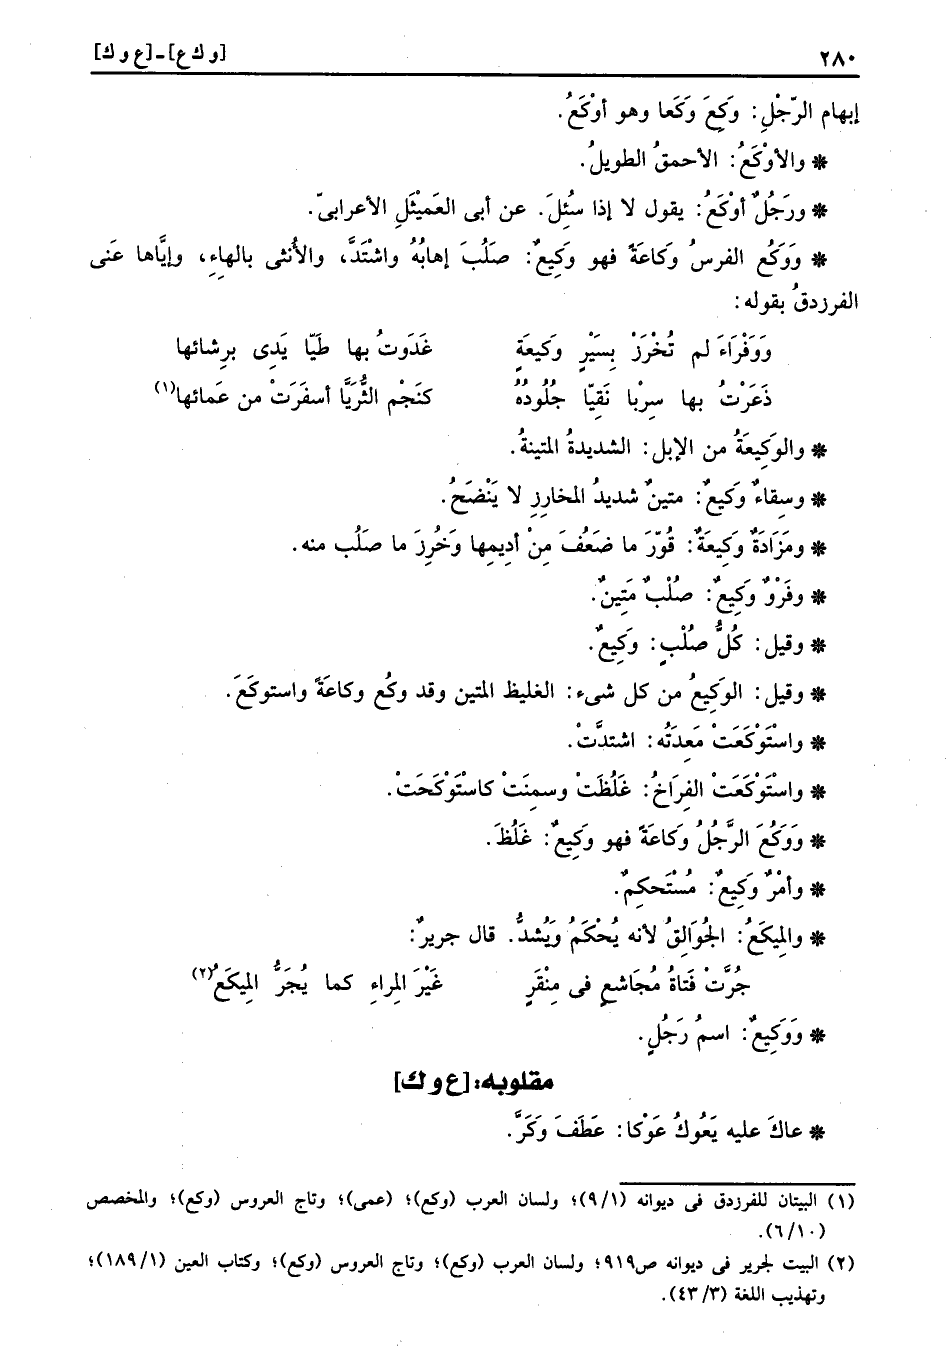 ٢٨٠ [و ك ع] - [ع و ك]
إبهام الرّجْلِ: وَكِعَ وَكَعا وهو أوْكَعُ.
* والأوْكَعُ: الأحمقُ الطويلُ.
* ورَجُلٌ أوْكَعُ: يقول لا إذا سُئِلَ. عن أبى العَمَيْثَلِ الأعرابىّ.
* وَوَكُع الفرسُ وَكاعَةً فهو وَكِيعٌ: صَلُبَ إهابُهُ واشْتَدَّ، والأُنْثى بالهاءِ، وإيَّاها عنَى
الفرزدقُ بقوله:
وَوَفْرَاءَ لم تُخْرَزْ بِسَيْرٍ وَكِيعَةٍ غَدَوتُ بها طَيّا يَدِى بِرِشائها
ذَعَرْتُ بها سِرْبا نَقِيّا جُلُودُهُ كنَجْمِ الثُّرَيَّا أسفَرَتْ من عَمائها(١)
* والوَكِيعَةُ من الإبل: الشديدةُ المتينةُ.
* وسِقاءٌ وَكيعٌ: متينٌ شديدُ المخارِزِ لا يَنْضَحُ.
* ومَزَادَةٌ وَكِيعَةٌ: قُوّرَ ما ضَعُفَ مِنْ أدِيمِها وَخُرِزَ ما صَلُب منه.
* وفَرْوٌ وَكِيعٌ: صُلْبٌ مَتِينٌ.
* وقيل: كُلُّ صُلْبٍ: وَكِيعٌ.
* وقيل: الوَكِيعُ من كل شىء: الغليظ المتين وقد وكُع وكاعَةً واستوكَعَ.
* واسْتَوْكَعَتْ مَعِدَتُه: اشتدَّتْ.
* واسْتَوْكَعَتْ الفِرَاخُ: غَلُظَتْ وسمِنَتْ كاسْتَوْكَحَتْ.
* وَوَكُعَ الرَّجُلُ وَكاعَةً فهو وَكِيعٌ: غَلُظَ.
* وأمْرٌ وَكِيعٌ: مُسْتَحكِمٌ.
* والمِيكَعُ: الجُوَالِقُ لأنه يُحْكَمُ وَيُشدُّ. قال جريرٌ:
جُرَّتْ فَتاةُ مُجَاشعٍ فى مِنْقَرٍ غَيْرَ المِراءِ كما يُجَرُّ المِيكَعُ(٢)
* وَوَكِيعٌ: اسمُ رَجُلٍ.
مقلوبه: [ع و ك]
* عاكَ عليه يَعُوكُ عَوْكا: عَطَفَ وَكَرَّ.
(١) البيتان للفرزدق فى ديوانه (٩/١)؛ ولسان العرب (وكع)؛ (عمى)؛ وتاج العروس (وكع)؛ والمخصص
(٦/١٠).
(٢) البيت لجرير فى ديوانه ص٩١٩؛ ولسان العرب (وكع)؛ وتاج العروس (وكع)؛ وكتاب العين (١٨٩/١)؛
وتهذيب اللغة (٤٣/٣).